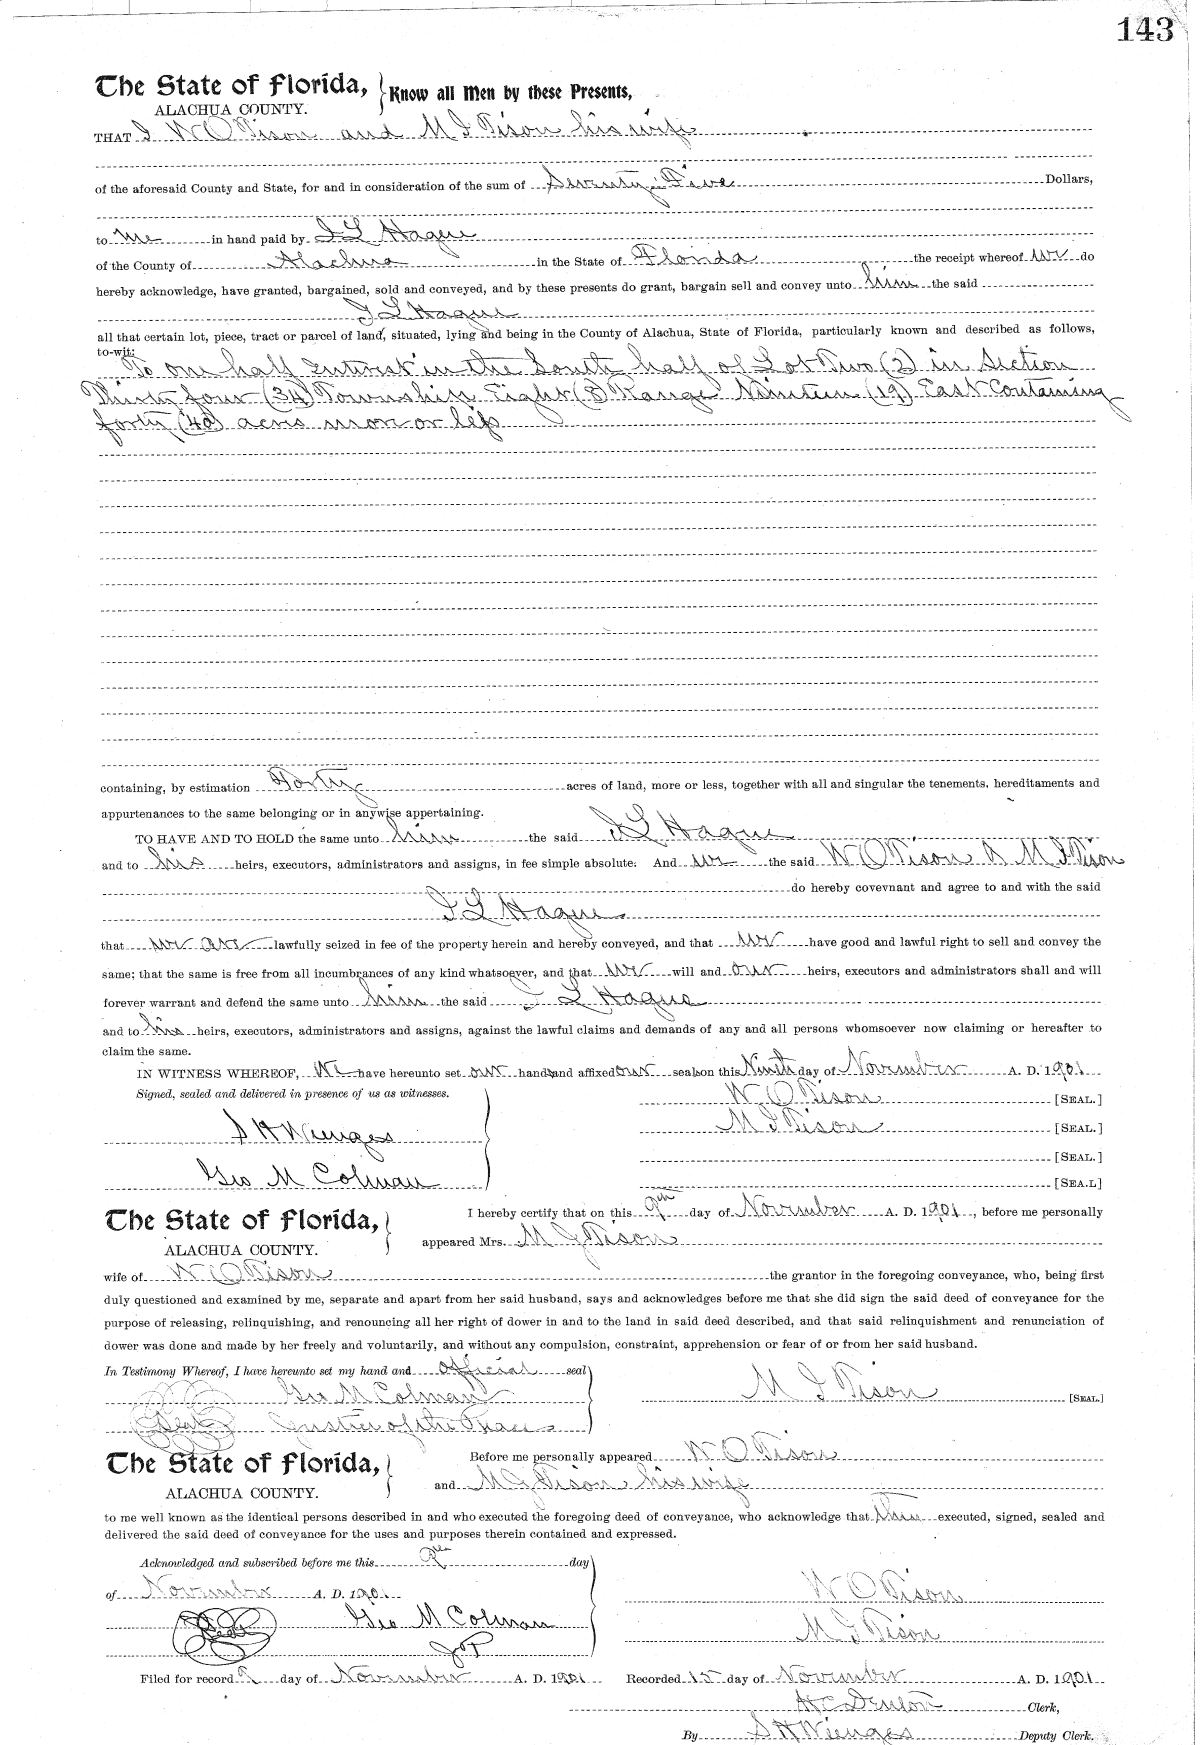 143
The State of Florida, } Know all Men by these Presents,
ALACHUA COUNTY.
THAT I W O Tison and M J Tison his wife
of the aforesaid County and State, for and in consideration of the sum of Seventy-Five Dollars,
to me in hand paid by J L Hague
of the County of Alachua in the State of Florida the receipt whereof we do
hereby acknowledge, have granted, bargained, sold and conveyed, and by these presents do grant, bargain sell and convey unto him the said
J L Hague
all that certain lot, piece, tract or parcel of land, situated, lying and being in the County of Alachua, State of Florida, particularly known and described as follows,
to-wit:
To one half interest in the South half of Lot Two (2) in Section
Thirty four (34) Township Eight (8) Range Nineteen (19) East Containing
forty (40) acres mor or less
containing, by estimation Forty acres of land, more or less, together with all and singular the tenements, hereditaments and
appurtenances to the same belonging or in anywise appertaining.
TO HAVE AND TO HOLD the same unto him the said J L Hague
and to his heirs, executors, administrators and assigns, in fee simple absolute: And we the said W O Tison & M J Tison
do hereby covevnant and agree to and with the said
J L Hague
that we are lawfully seized in fee of the property herein and hereby conveyed, and that we have good and lawful right to sell and convey the
same; that the same is free from all incumbrances of any kind whatsoever, and that we will and our heirs, executors and administrators shall and will
forever warrant and defend the same unto him the said J L Hague
and to his heirs, executors, administrators and assigns, against the lawful claims and demands of any and all persons whomsoever now claiming or hereafter to
claim the same.
IN WITNESS WHEREOF, We have hereunto set our hands and affixed our seals on this Ninth day of November A. D. 1901
Signed, sealed and delivered in presence of us as witnesses.
W O Tison [SEAL.]
M J Tison [SEAL.]
S H Wienges
[SEAL.]
Geo M Colman
[SEA.L]
The State of Florida, } I hereby certify that on this 9th day of November A. D. 1901, before me personally
ALACHUA COUNTY. appeared Mrs. M J Tison
wife of W O Tison the grantor in the foregoing conveyance, who, being first
duly questioned and examined by me, separate and apart from her said husband, says and acknowledges before me that she did sign the said deed of conveyance for the
purpose of releasing, relinquishing, and renouncing all her right of dower in and to the land in said deed described, and that said relinquishment and renunciation of
dower was done and made by her freely and voluntarily, and without any compulsion, constraint, apprehension or fear of or from her said husband.
In Testimony Whereof, I have hereunto set my hand and official seal
Geo M Colman M J Tison [SEAL]
Seal Justice of the Peace
The State of Florida, } Before me personally appeared W O Tison
ALACHUA COUNTY. and M J Tison his wife
to me well known as the identical persons described in and who executed the foregoing deed of conveyance, who acknowledge that they executed, signed, sealed and
delivered the said deed of conveyance for the uses and purposes therein contained and expressed.
Acknowledged and subscribed before me this 9th day
of November A. D. 1901 W O Tison
Seal Geo M Colman M J Tison
J P
Filed for record 9 day of November A. D. 1901 Recorded 15 day of November A. D. 1901
H C Denton Clerk,
By S H Wienges Deputy Clerk.